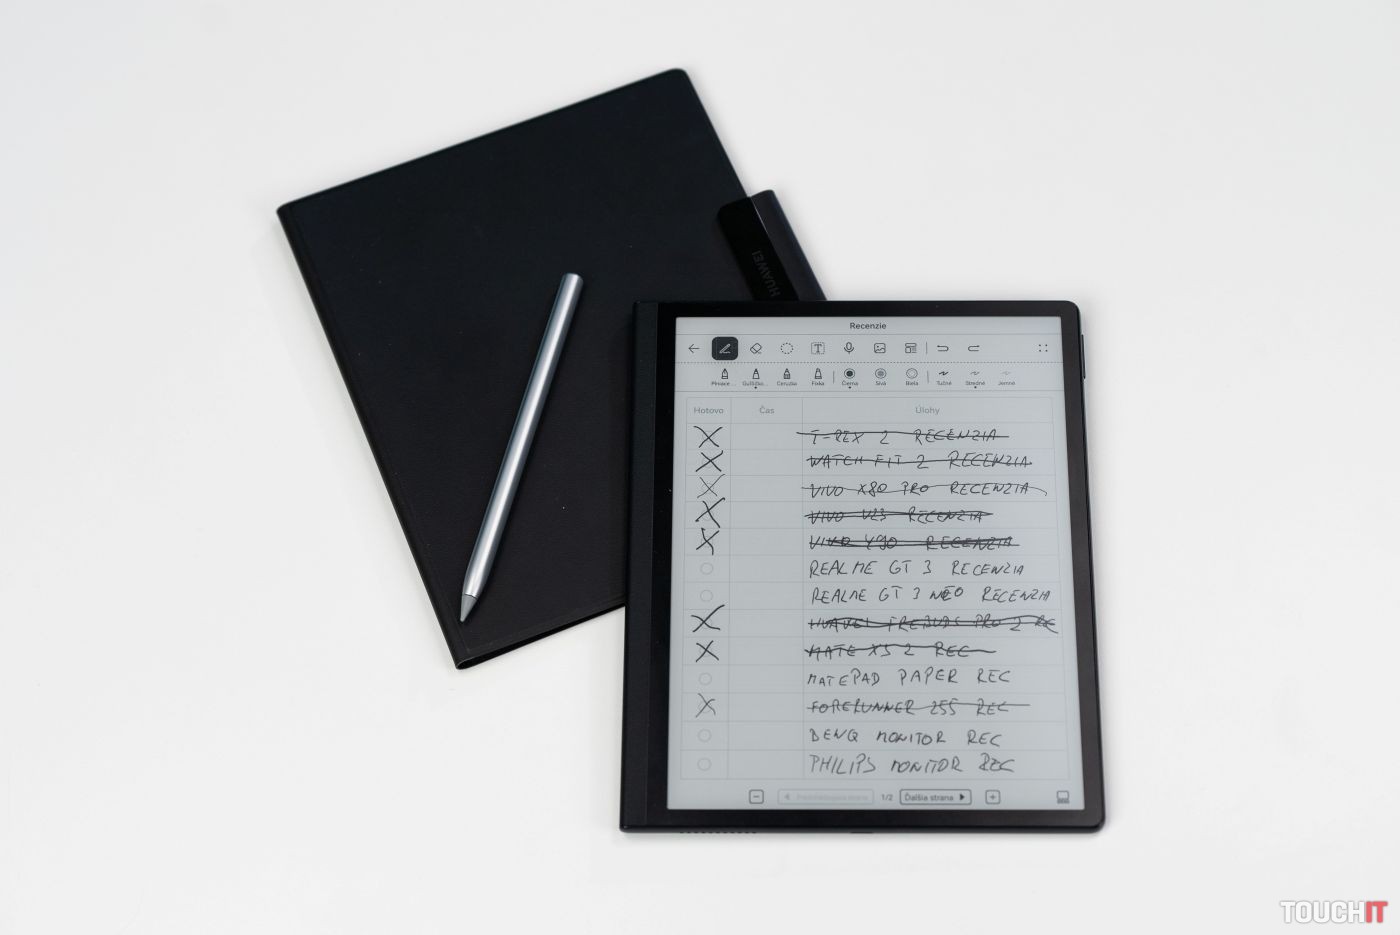 HUAWEI
Recenzie
Guľôčko... Ceruzka Fixka Čierna Sivá Biela Tučné Stredné Jemné
Hotovo Čas Úlohy
T-REX 2 RECENZIA
WATCH FIT 2 RECENZIA
VIVO X80 PRO RECENZIA
VIVO V23 RECENZIA
VIVO RECENZIA
REALME GT 3 RECENZIA
REALME GT 3 NEO RECENZIA
HUAVEI FREBUDS PRO 2 RE
MATE XS 2 REC
MATEPAD PAPER REC
FORERUNNER 255 REC
BENQ MONITOR REC
PHILIPS MONITOR REC
1/2 Ďalšia strana
TOUCHIT